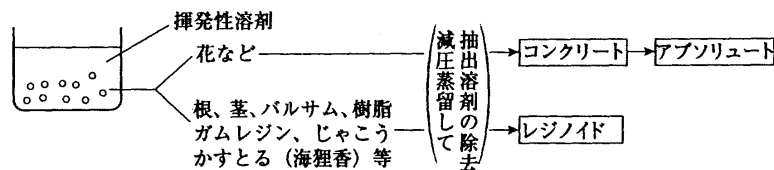 揮発性溶剤
花など
根、茎、バルサム、樹脂
ガムレジン、じゃこう
かすとる（海狸香）等
抽出溶剤の除去
減圧蒸留して
コンクリート
アブソリュート
レジノイド